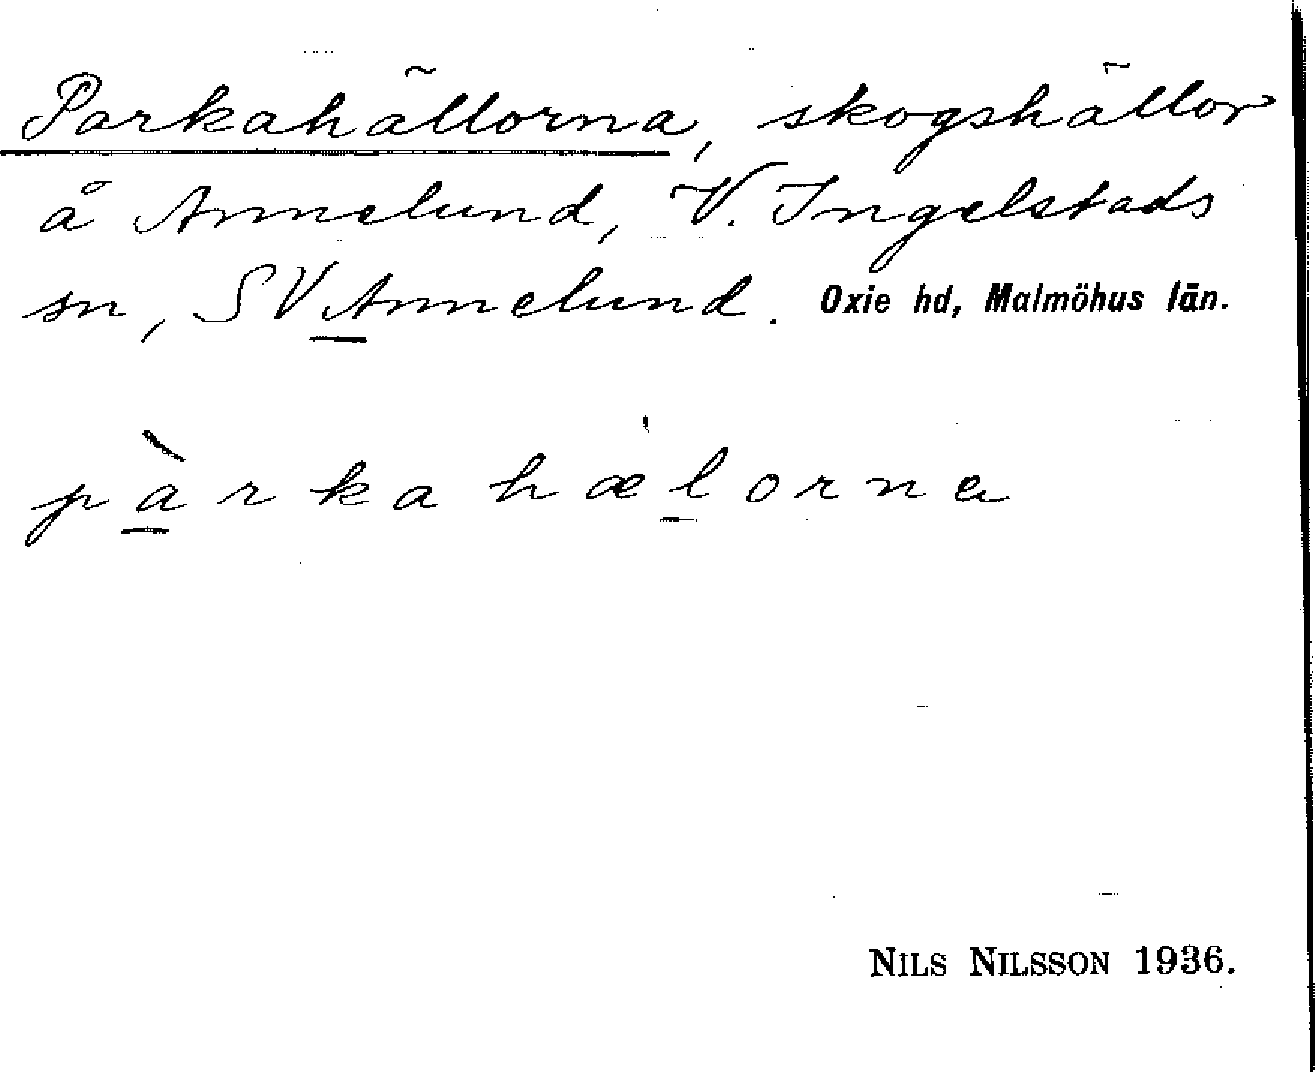 Parkahällorna, skogshällor
å Annelund, V. Ingelstads
sn, SV Annelund. Oxie hd, Malmöhus län.
pàrkahælorna
NILS NILSSON 1936.